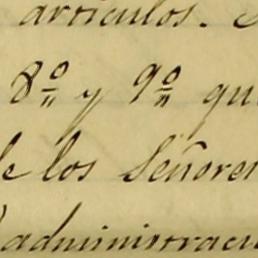 artículos.
8º y 9º que
de los Señores
administraci